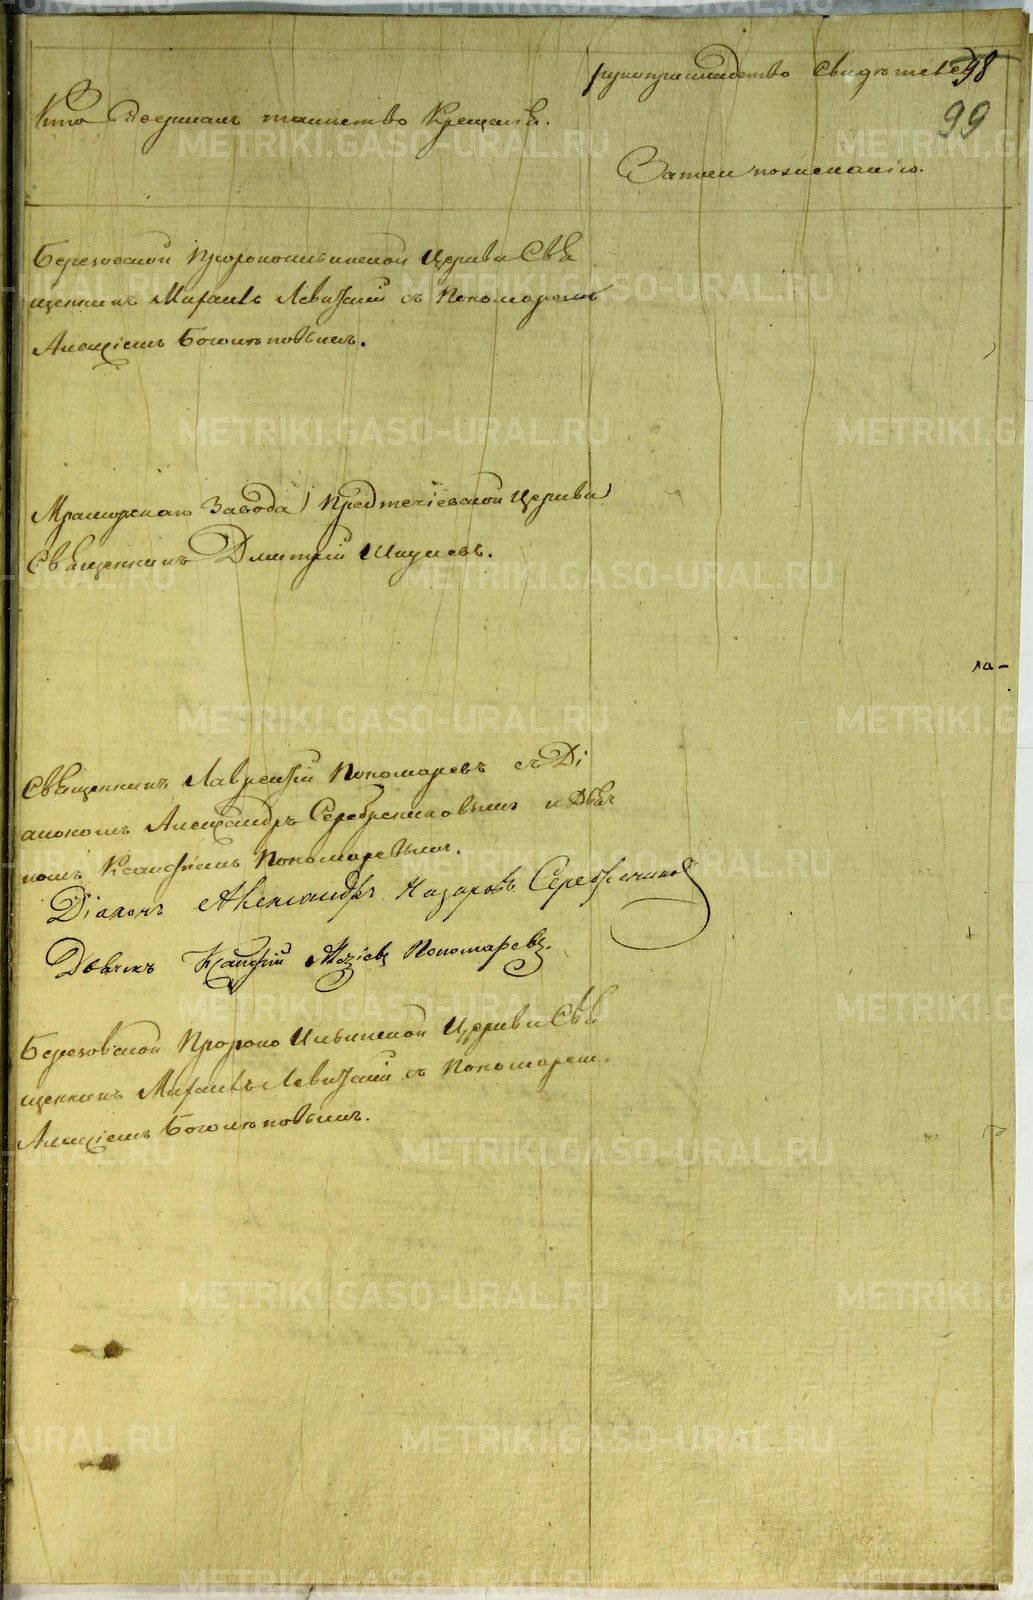 Кто совершалъ таинство Крещенія.
рукоприкладство свидѣтелей
98
99
записи по желанію.
Березовской Пророкоильинской Церкви Свя
щенникъ Михаилъ Левицкій съ Пономаремъ
Алексіемъ Боголюповымъ.
Мраморскаго Завода Предтечіевской Церкви
Священникъ Дмитрій
ла-
Священникъ Лаврентій Пономаревъ съ Ді
акономъ Александръ Серебрениковымъ и Дьяч
комъ Ксанфіемъ Пономаревымъ.
Діаконъ Александръ Назаровъ Серебрениковъ
Дьячекъ Ксанфій Пономаревъ.
Березовской Пророко Ильинской Церкви Свя
щенникъ Михаилъ Левицкій съ Пономарем.
Алексіемъ Боголюповымъ.
METRIKI.GASO-URAL.RU